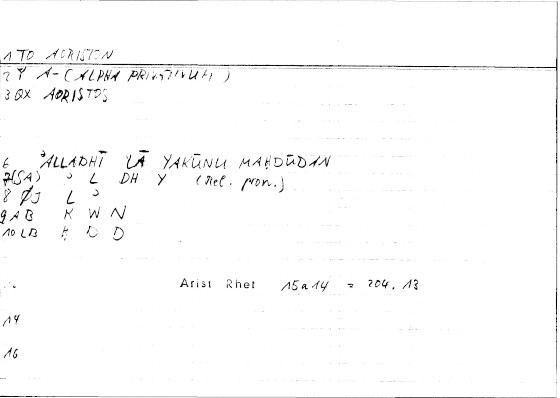 1 TO AORISTON
2 Y A-(ALPHA PRIVATIVUM)
3 QX AORISTOS
6 ʾALLADHĪ LĀ YAKŪNU MAḤDŪDAN
7(SA) ʾ L DH Y (Rel. pron.)
8 ØJ L ʾ
9 AB K W N
10 LB Ḥ D D
Arist Rhet 15a14 = 204.13
14
16